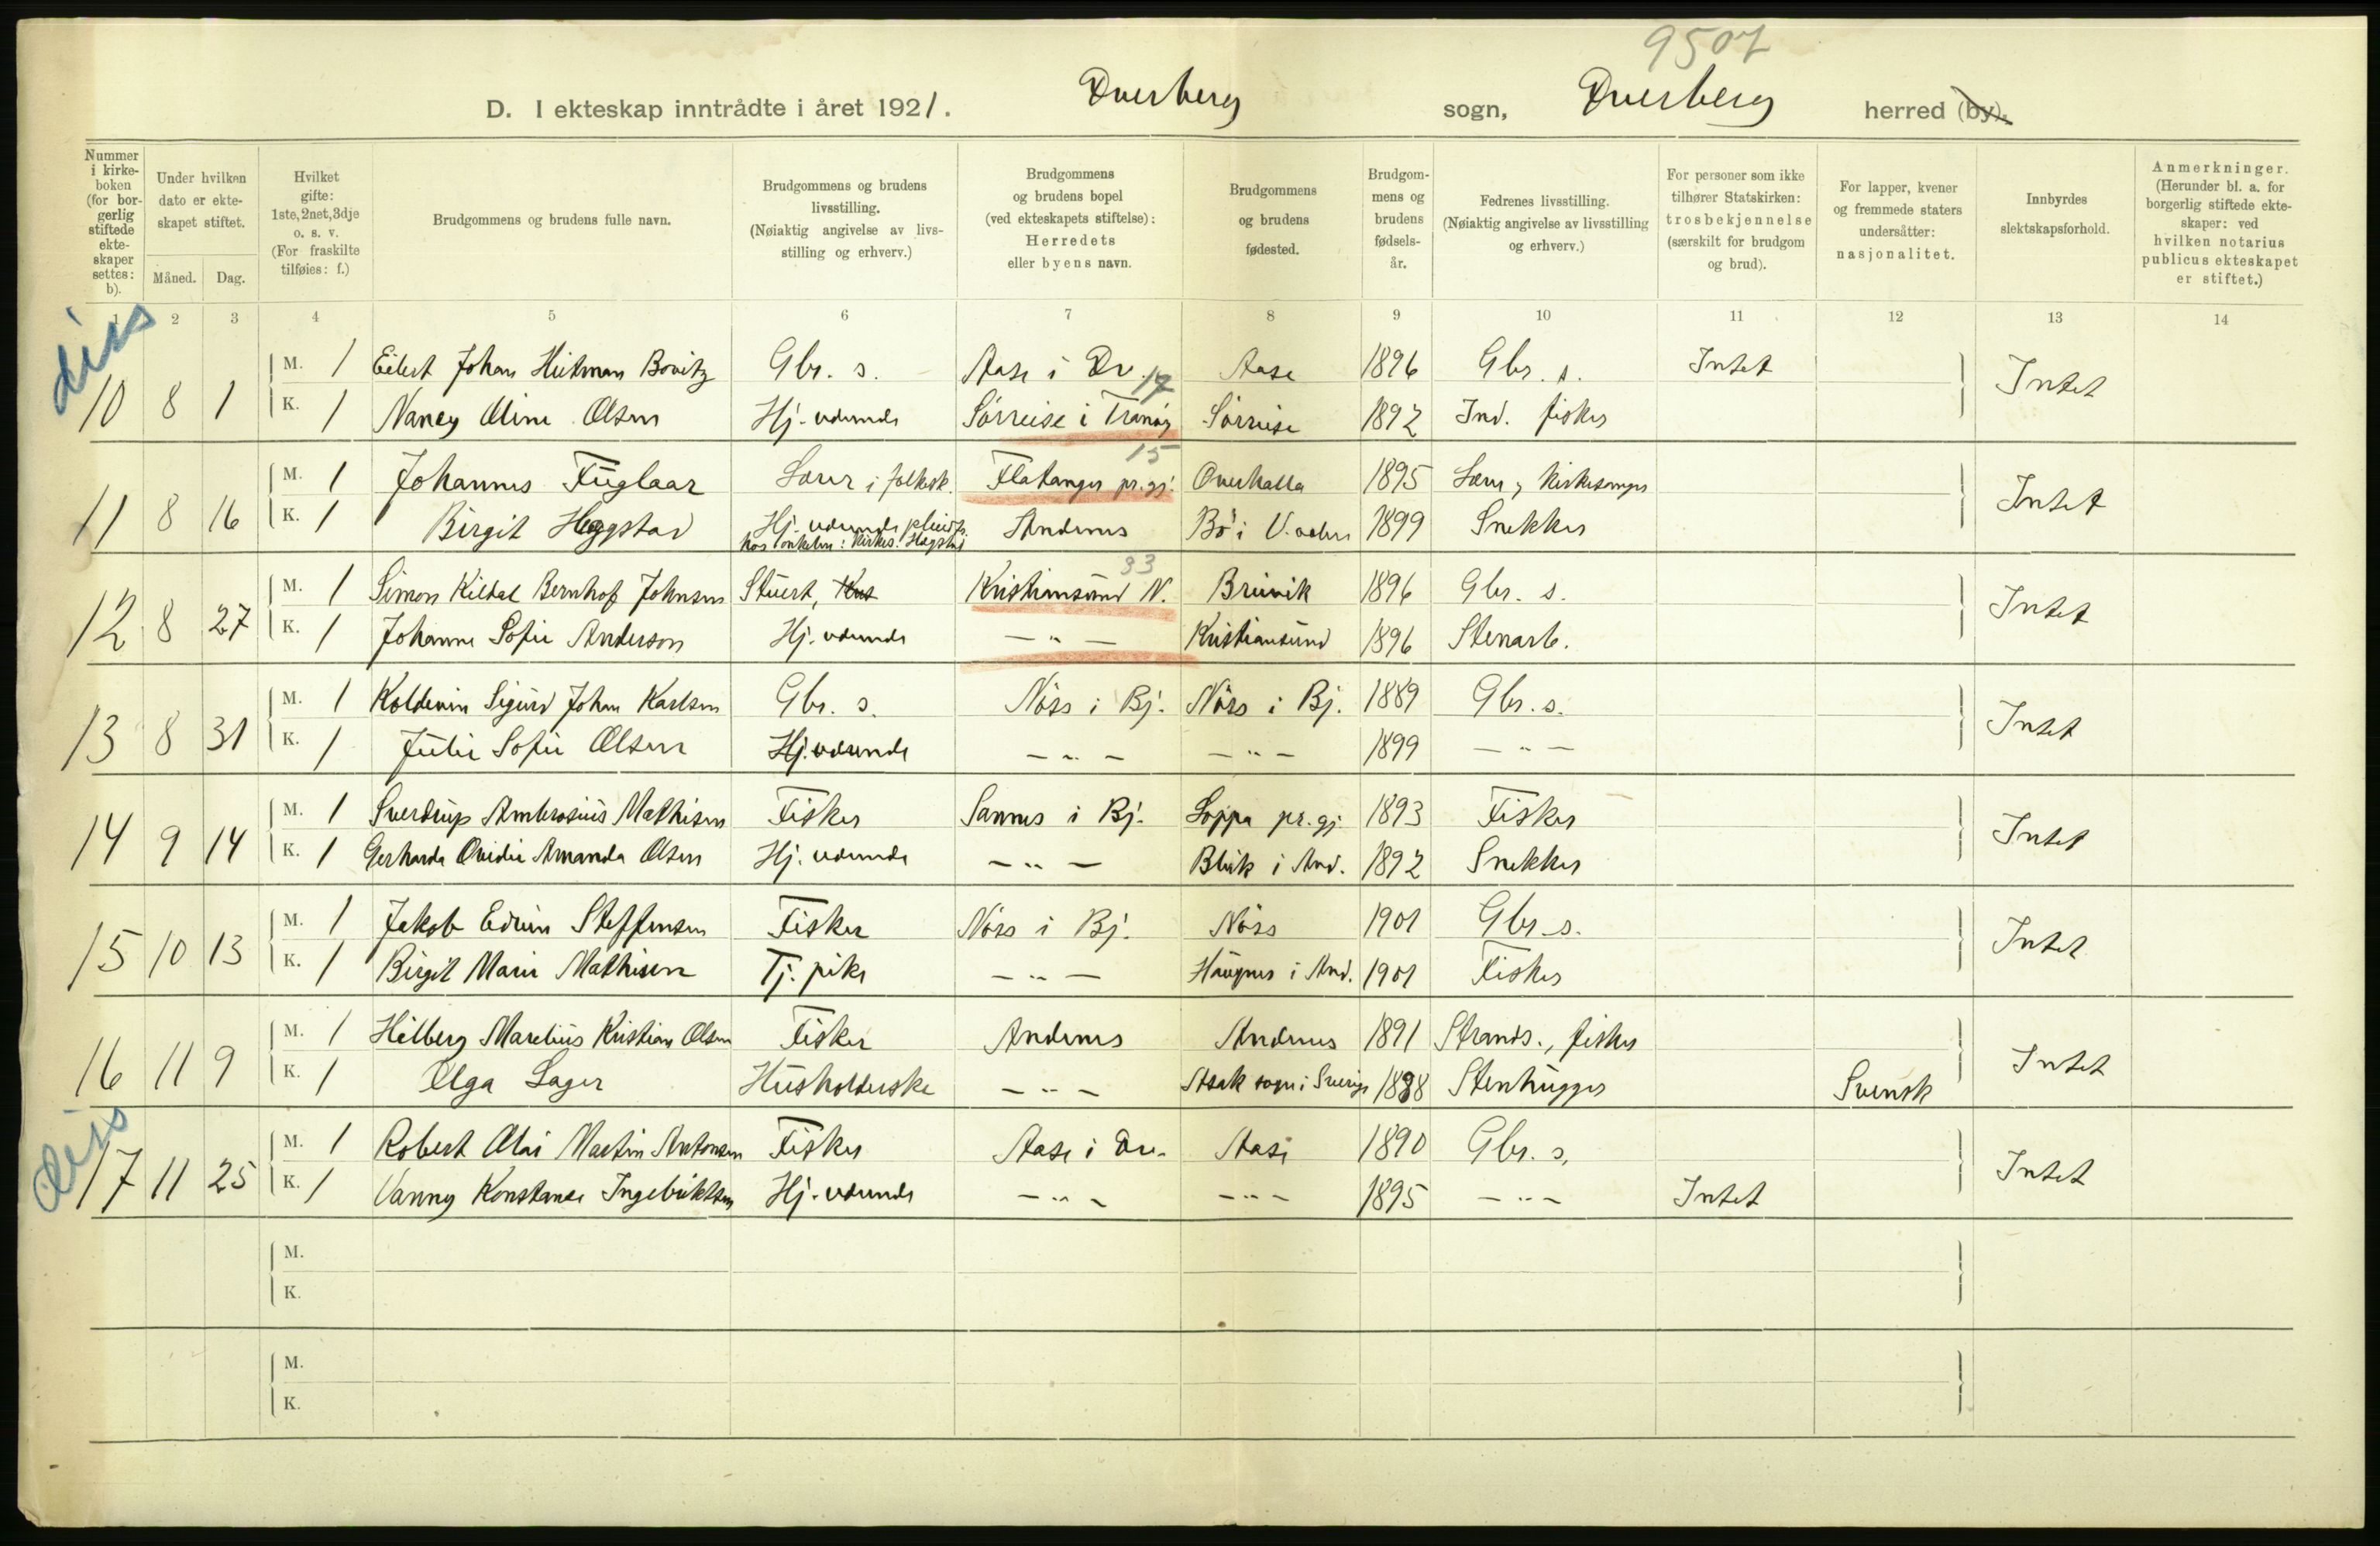 9507
D. I ekteskap inntrådte i året 1921. Dverberg sogn, Dverberg herred (by).
Nummer i kirkeboken (for borgerlig stiftede ekteskaper settes: b).
Under hvilken dato er ekteskapet stiftet.
Måned. Dag.
Hvilket gifte: 1ste, 2net, 3dje o. s. v. (For fraskilte tilføies: f.)
Brudgommens og brudens fulle navn.
Brudgommens og brudens livsstilling. (Nøiaktig angivelse av livsstilling og erhverv.)
Brudgommens og brudens bopel (ved ekteskapets stiftelse): Herredets eller byens navn.
Brudgommens og brudens fødested.
Brudgommens og brudens fødselsår.
Fedrenes livsstilling. (Nøiaktig angivelse av livsstilling og erhverv.)
For personer som ikke tilhører Statskirken: trosbekjennelse (særskilt for brudgom og brud).
For lapper, kvener og fremmede staters undersåtter: nasjonalitet.
Innbyrdes slektskapsforhold.
Anmerkninger. (Herunder bl. a. for borgerlig stiftede ekteskaper: ved hvilken notarius publicus ekteskapet er stiftet.)
1 2 3 4 5 6 7 8 9 10 11 12 13 14
diss
10 8 1 M. 1 Eilert Johan Hitman Bovitz Gbr. s. Aase i Dv. Aase 1896 Gbr. s. Intet Intet
17
K. 1 Nancy Oline Olsen Hj. værende Sørreise i Tranøy Sørreise 1892 Ind. fisker
15
11 8 16 M. 1 Johannes Fuglaar Lærer i folkesk. Flatanger pr.gj. Overhalla 1895 Lærer, kirkesanger Intet
K. 1 Birgit Hegstad Hj. værende pleied. hos onkelen: kirkes. Hegstad Andenes Bø i V.aalen 1899 Snekker
33
12 8 27 M. 1 Simon Kildal Bernhof Johnsen Stuert, Kristiansund N. Breivik 1896 Gbr. s. Intet
K. 1 Johanne Sofie Anderson Hj. værende — " — Kristiansund 1896 Stenarb.
13 8 31 M. 1 Koldevin Sigurd Johan Karlsen Gbr. s. Nöss i Bj. Nöss i Bj. 1889 Gbr. s. Intet
K. 1 Julie Sofie Olsen Hj. værende — " — — " — 1899 — " —
14 9 14 M. 1 Sverdrup Ambrosius Mathisen Fisker Sannes i Bj. Loppa pr.gj. 1893 Fisker Intet
K. 1 Gerharda Ovidie Amanda Olsen Hj. værende — " — Bleik i And. 1892 Snekker
15 10 13 M. 1 Jakob Edvin Steffensen Fisker Nöss i Bj. Nöss 1901 Gbr. s. Intet
K. 1 Birgit Marie Mathisen Tj. pike — " — Haugnes i And. 1901 Fisker
16 11 9 M. 1 Hilberg Marelius Kristian Olsen Fisker Andenes Andenes 1891 Strands., fisker Intet
K. 1 Olga Lager Husholderske — " — Asak sogn i Sverige 1888 Stenhugger Svensk
diss
17 11 25 M. 1 Robert Olai Martin Antonsen Fisker Aase i Dv. Aase 1890 Gbr. s. Intet
K. 1 Vanny Konstanse Ingebriktsen Hj. værende — " — — " — 1895 — " — Intet
M.
K.
M.
K.